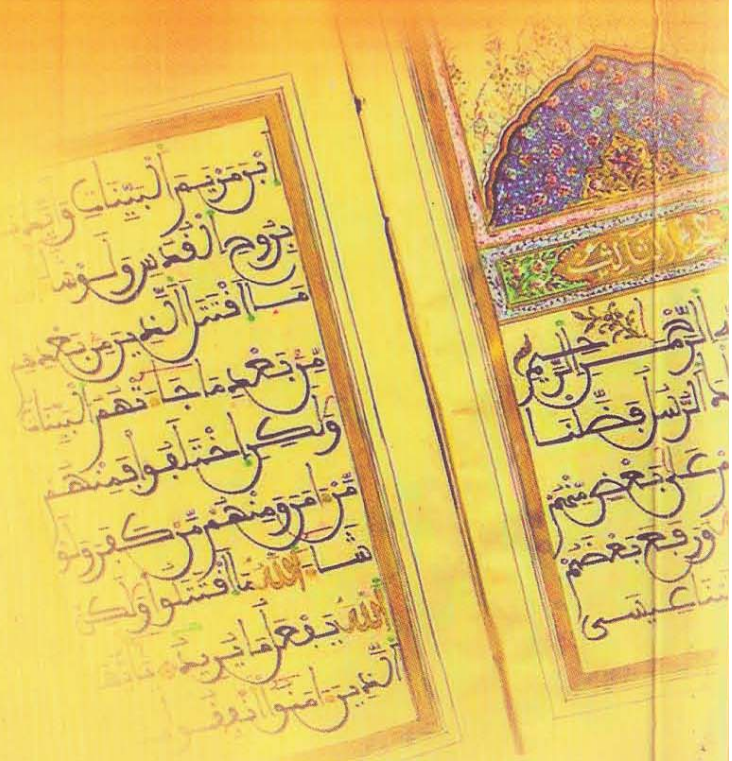 الثالث
الرحمن الرحيم
الرسل فضلنا
على بعض منهم
ورفع بعضهم
عيسى
ابن مريم البينات
بروح القدس ولو
ما اقتتل الذين من بعدهم
من بعد ما جاءتهم البينات
ولكن اختلفوا فمنهم
من ءامن ومنهم من كفر ولو
شاء الله ما اقتتلوا ولكن
الله يفعل ما يريد يأيها
الذين ءامنوا أنفقوا